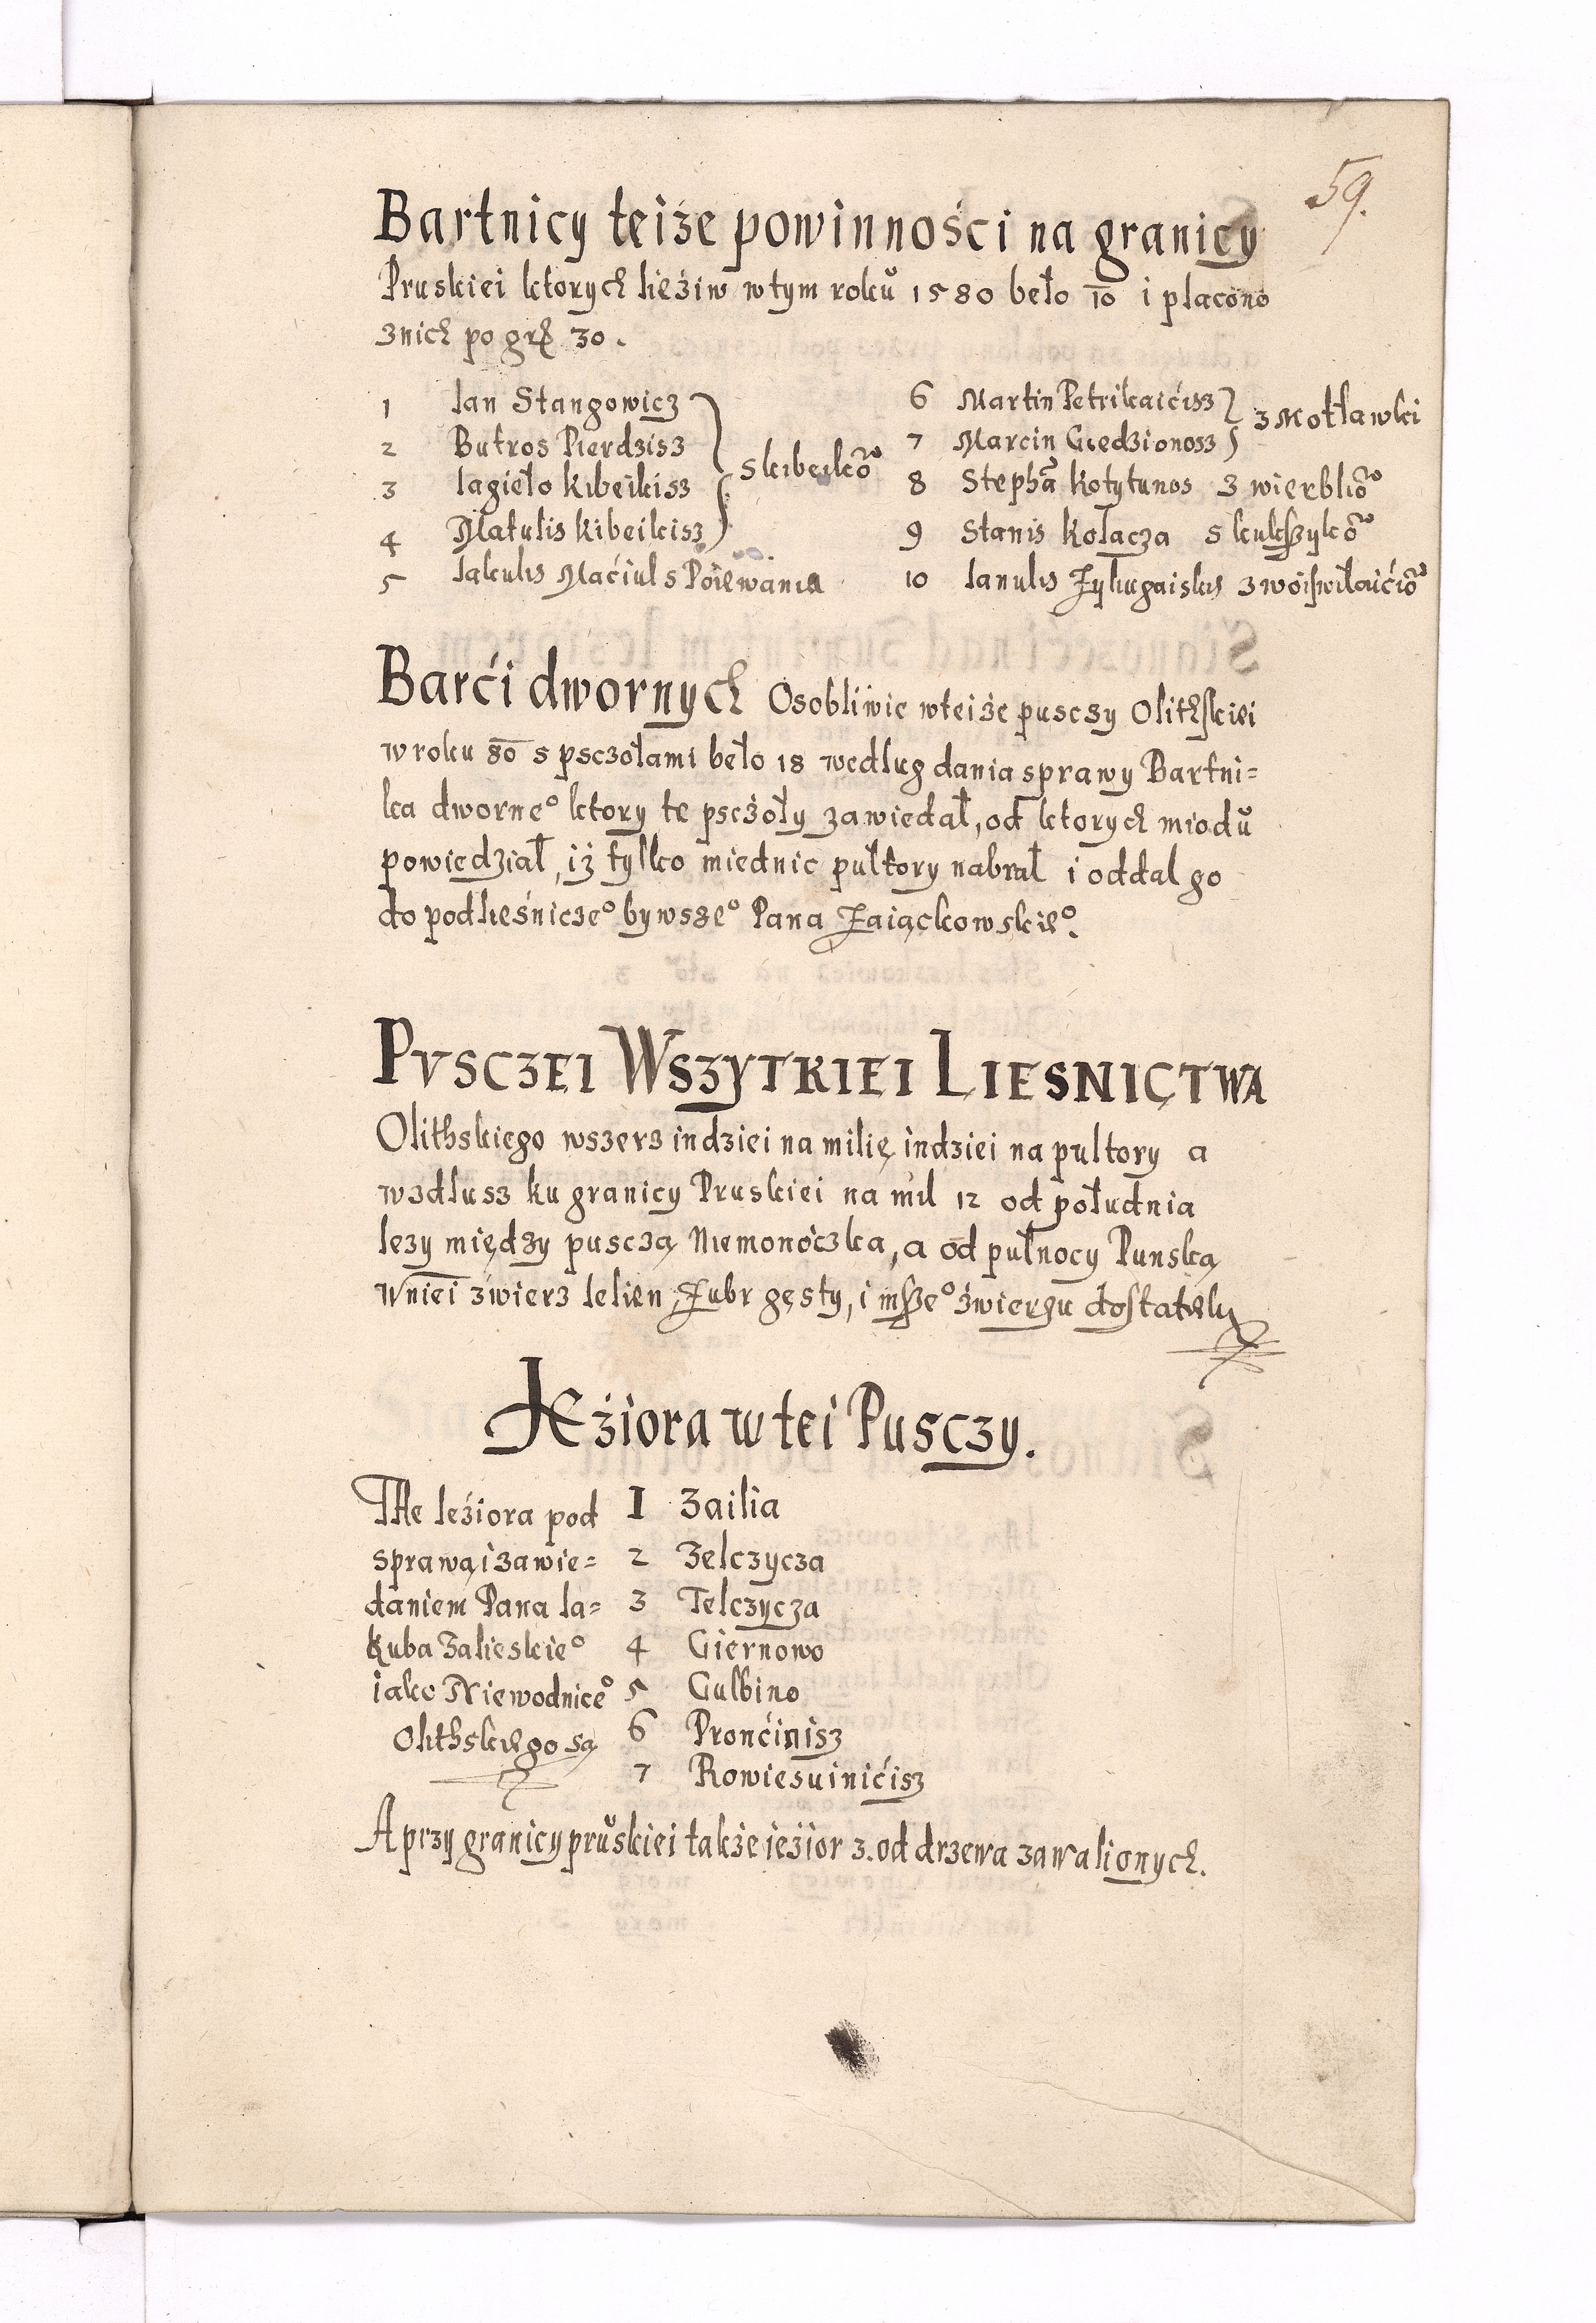 59.
Bartnicy teiże powinności na granicy
Pruskiei ktorych lieżiw w tym roku 1580 beło 10 i placono
znich po grl 30.
1 Ian Stangowicz
2 Butros Pierdzisz
3 Iagieło Kibeikisz
4 Matulis Kibeikisz
s kibeikōw
5 Iakulis Maciul s Poiewania
6 Martin Petrikaićisz
7 Marcin Giedzionosz
z Motławki
8 Stephā Kotytunos z wierbliōw
9 Stanis Kołacza s kukſzykōw
10 Ianulis Żyliugaiskis z woiſwiłaićiōw
Barći dwornych Osobliwie wteiże pusczy Olithſkiei
w roku 80 s psczołami beło 18 według dania sprawy Bartni=
ka dworneº ktory te psczoły zawiedał, od ktorych miodu
powiedział, iż tylko miednic pułtory nabrał i oddal go
do podlieśniczeº bywszeº Pana Zaiączkowskieº.
PVSCZEI WSZYTKIEI LIESNICTWA
Olithskiego wszerz indziei na milię indziei na pultory a
wzdłusz ku granicy Pruskiei na mil 12 od południa
lezy między pusczą Niemonoczka, a od pułnocy Punską
W niei zwierz Ielien, Żubr gęsty, i inſzeº źwierzu doſtatek
Ieżiora w tei Pusczy.
TAe Ieżiora pod
sprawą i zawie=
daniem Pana Ia=
kuba Zalieskieº
iako Niewodniceº
Olithskiego są
1 Zailia
2 Zelczycza
3 Telczycza
4 Giernowo
5 Gulbino
6 Pronćinisz
7 Rowiesuinićisz
A przy granicy pruskiei także ieżior 3. od drzewa zawalionych.